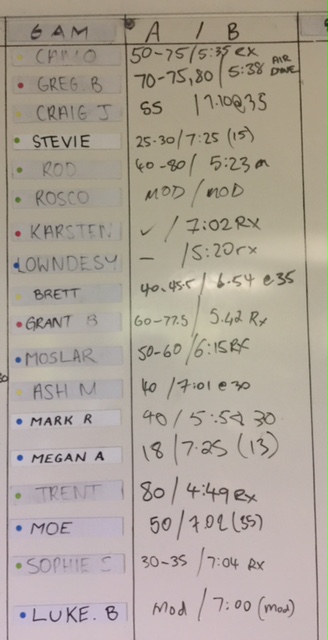 6AM A / B
CAMO 50-75/5:35 rx
GREG. B 70-75,80 / 5:38 AIR DYNE
CRAIG J 55 / 7.10@35
STEVIE 25-30/7:25 (15)
ROD 40-80/ 5:23 m
ROSCO MOD / MOD
KARSTEN ✓ / 7:02 Rx
LOWNDESY – /5:20 rx
BRETT 40.45.5 / 6.54 @35
GRANT B 60-77.5 / 5.42 Rx
MOSLAR 50-60/6:15 RX
ASH M 40 /7:01@30
MARK R 40 / 5:59 30
MEGAN A 18 /7:25 (13)
TRENT 80 / 4:49 Rx
MOE 50 /7.02 (35)
SOPHIE 30-35 /7:04 Rx
LUKE. B Mod / 7:00 (mod)